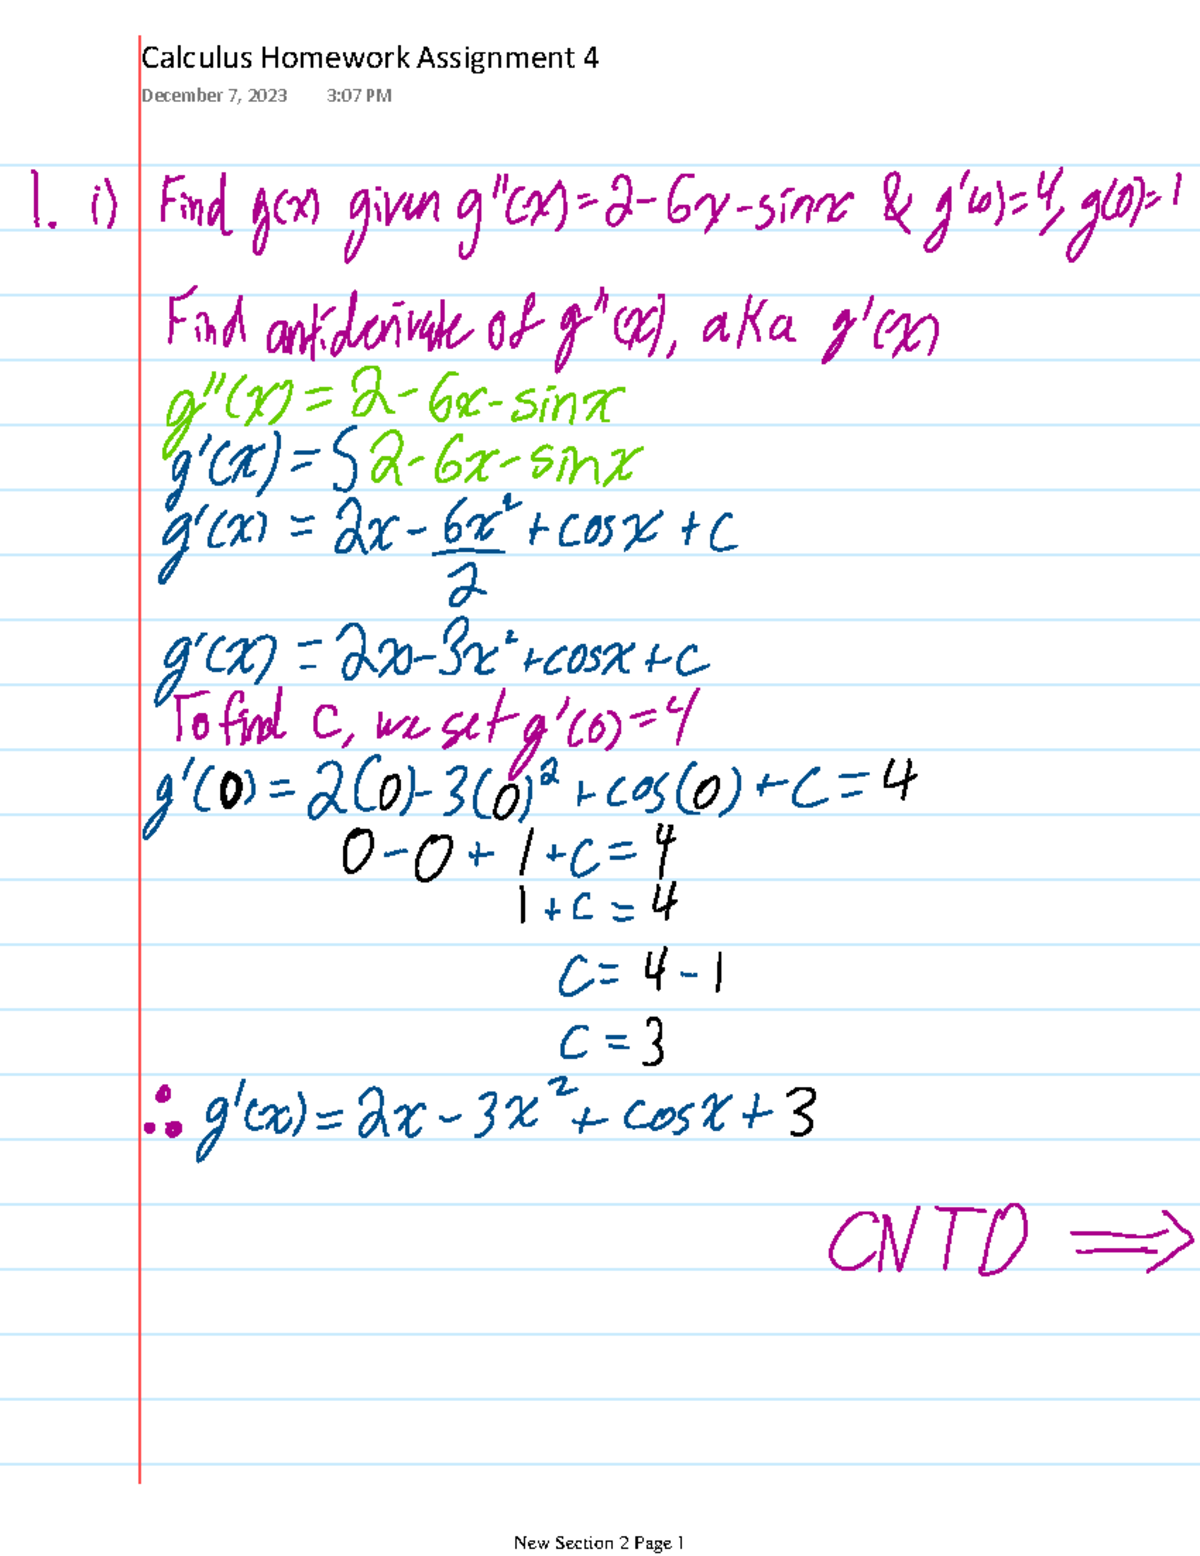 Calculus Homework Assignment 4
December 7, 2023 3:07 PM
1. i) Find g(x) given g"(x)=2-6x-sinx & g'(0)=4, g(0)=1
Find antiderivate of g"(x), aka g'(x)
g"(x) = 2-6x-sinx
g'(x) = ∫2-6x-sinx
g'(x) = 2x - 6x² + cosx + c
2
g'(x) = 2x-3x²+cosx+c
To find C, we set g'(0)=4
g'(0) = 2(0)-3(0)²+cos(0)+C=4
0-0+1+C=4
1+C=4
C=4-1
C=3
∴ g'(x)=2x-3x²+cosx+3
CNTD ⇒
New Section 2 Page 1